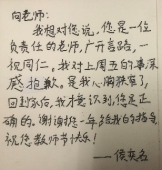 向老师:
我想对您说,您是一位
负责任的老师,广开言路,一
视同仁。我对上周五的事深
感抱歉。是我心胸狭窄了,
回到家后,我才意识到,您是正
确的。谢谢快一年给我们的指导
祝您教师节快乐!
——侯东名